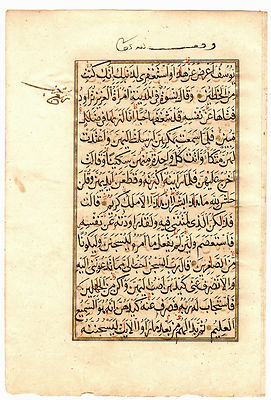 يوسف اعرض عن هذا واستغفرى لذنبك انك كنت
من الخاطئين وقال نسوة فى المدينة امرأت العزيز تراود
فتاها عن نفسه قد شغفها حبا انا لنراها فى ضلال
مبين فلما سمعت بمكرهن ارسلت اليهن واعتدت
لهن متكئا واتت كل واحدة منهن سكينا وقالت
اخرج عليهن فلما راينه اكبرنه وقطعن ايديهن وقلن
حاش لله ما هذا بشرا ان هذا الا ملك كريم قالت
فذلكن الذى لمتننى فيه ولقد راودته عن نفسه
فاستعصم ولئن لم يفعل ما امره ليسجنن وليكونا
من الصاغرين قال رب السجن احب الى مما يدعوننى اليه
والا تصرف عنى كيدهن اصب اليهن واكن من الجاهلين
فاستجاب له ربه فصرف عنه كيدهن انه هو السميع
العليم ثم بدا لهم من بعد ما راوا الايات ليسجننه